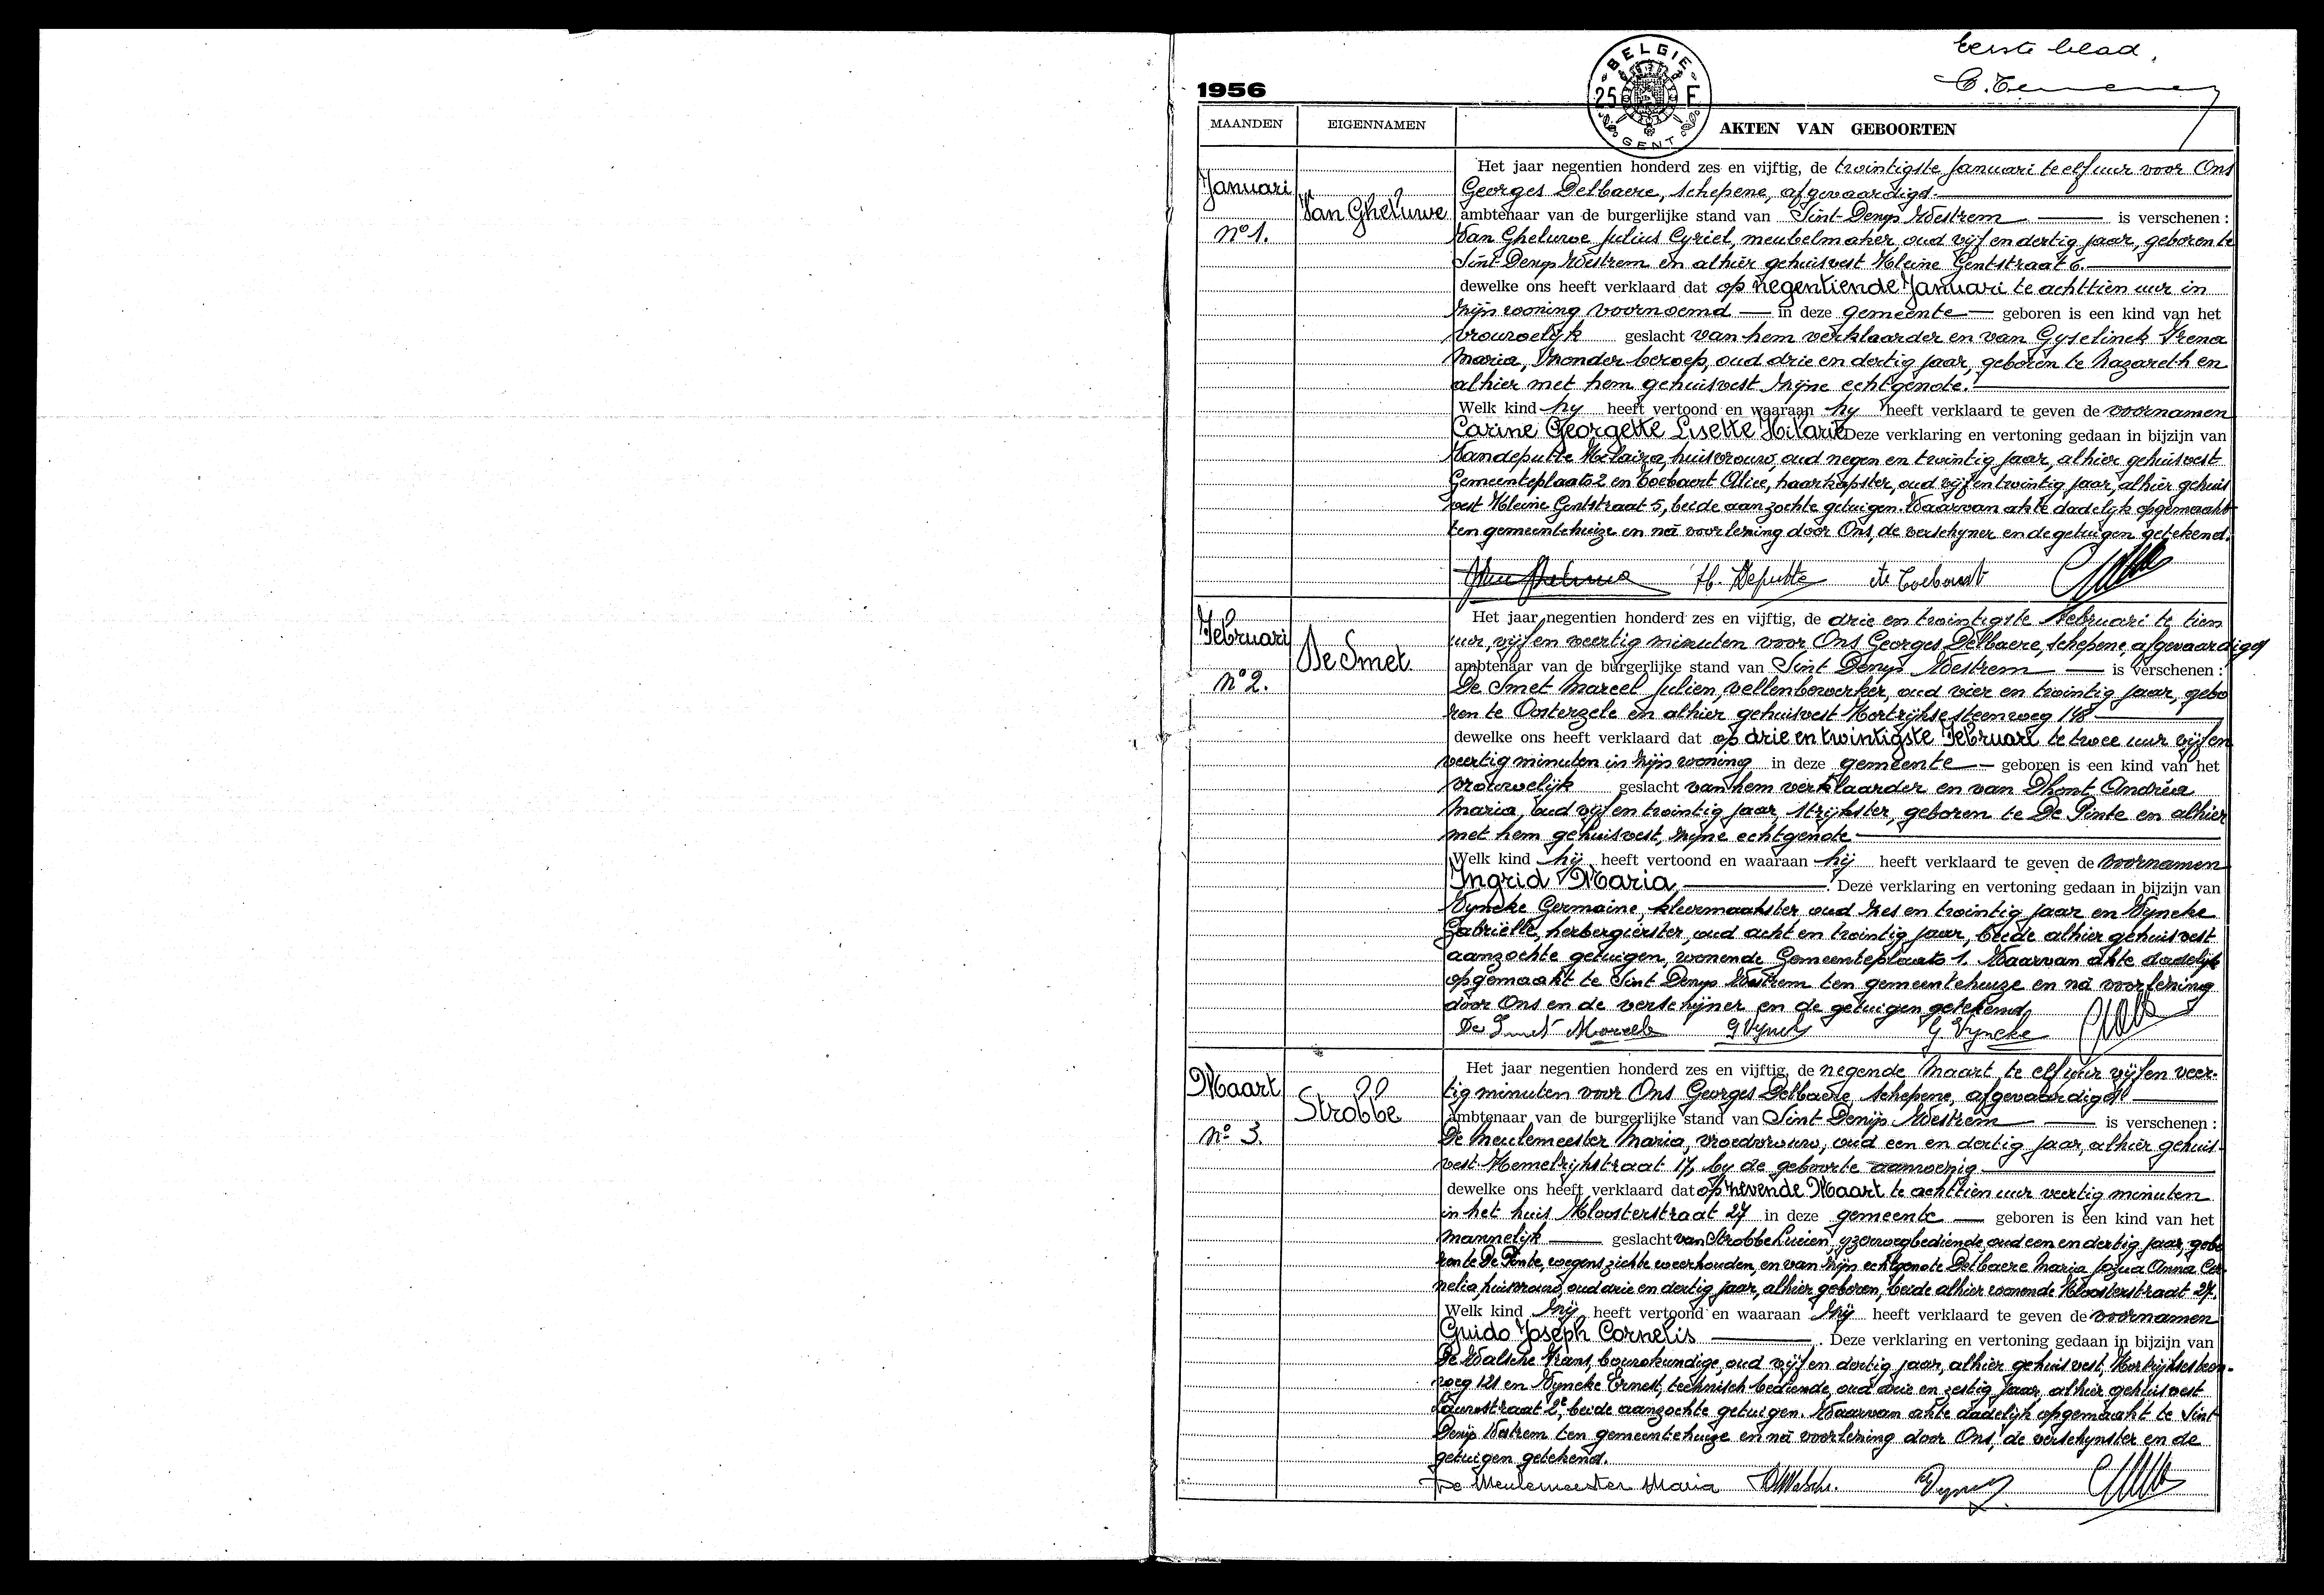 Eerste blad.
1956
BELGIE
25 F
GENT
MAANDEN EIGENNAMEN AKTEN VAN GEBOORTEN
Januari
N° 1.
Van Gheluwe
Het jaar negentien honderd zes en vijftig, de twintigste Januari te elf uur voor Ons
Georges Delbaere, schepene, afgevaardigd
ambtenaar van de burgerlijke stand van Sint-Denijs Westrem is verschenen :
Van Gheluwe Julius Cyriel, meubelmaker, oud vijf en dertig jaar, geboren te
Sint-Denijs Westrem en alhier gehuisvest Kleine Gentstraat 6.
dewelke ons heeft verklaard dat op negentiende Januari te achttien uur in
zijn woning voornoemd in deze gemeente geboren is een kind van het
vrouwelijk geslacht van hem verklaarder en van Gyselinck Irena
Maria, zonder beroep, oud drie en dertig jaar, geboren te Nazareth en
alhier met hem gehuisvest zijne echtgenote.
Welk kind hy heeft vertoond en waaraan hy heeft verklaard te geven de voornamen
Carine Georgette Lisette Hilarie Deze verklaring en vertoning gedaan in bijzijn van
Vandeputte Hilaira, huisvrouw, oud negen en twintig jaar, alhier gehuisvest
Gemeenteplaats 2 en Coebaert Alice, haarkapster, oud vijf en twintig jaar, alhier gehuis
vest Kleine Gentstraat 5, beide aanzochte getuigen. Waarvan akte dadelijk opgemaakt
ten gemeentehuize en na voorlezing door Ons, de verschyner en de getuigen getekend.
Februari
N° 2.
De Smet
Het jaar negentien honderd zes en vijftig, de drie en twintigste Februari te tien
uur, vijf en veertig minuten voor Ons Georges Delbaere, schepene, afgevaardigd
ambtenaar van de burgerlijke stand van Sint Denijs Westrem is verschenen :
De Smet Marcel Julien, vellenbewerker, oud vier en twintig jaar, gebo
ren te Oosterzele en alhier gehuisvest Kortrijkse steenweg 148
dewelke ons heeft verklaard dat op drie en twintigste Februari te twee uur vijf en
veertig minuten in zijn woning in deze gemeente geboren is een kind van het
vrouwelijk geslacht van hem verklaarder en van Dhont Andréa
Maria, oud vijf en twintig jaar, strijkster, geboren te De Pinte en alhier
met hem gehuisvest, zijne echtgenote
Welk kind hij heeft vertoond en waaraan hij heeft verklaard te geven de voornamen
Ingrid Maria . Deze verklaring en vertoning gedaan in bijzijn van
Vyncke Germaine, kleermaakster oud zes en twintig jaar en Vyncke
Gabriëlle, herbergierster, oud acht en twintig jaar, beide alhier gehuisvest
aanzochte getuigen, wonende Gemeenteplaats 1. Waarvan akte dadelijk
opgemaakt te Sint Denijs Westrem ten gemeentehuize en na voorlezing
door Ons en de verschijner en de getuigen getekend,
De Smet Marcel G Vyncke G Vyncke
Maart
N° 3.
Strobbe
Het jaar negentien honderd zes en vijftig, de negende Maart te elf uur vijf en veer-
tig minuten voor Ons Georges Delbaere, schepene, afgevaardigd
ambtenaar van de burgerlijke stand van Sint Denijs Westrem is verschenen :
De Meulemeester Maria, vroedvrouw, oud een en dertig jaar, alhier gehuis-
vest Hemelrijkstraat 17, by de geboorte aanwezig
dewelke ons heeft verklaard dat op zevende Maart te achttien uur veertig minuten
in het huis Kloosterstraat 27 in deze gemeente geboren is een kind van het
mannelijk geslacht van Strobbe Lucien, yzerwegbediende, oud een en dertig jaar, gebo
ren te De Pinte, wegens ziekte weerhouden, en van zijn echtgenote Delbaere Maria Jozua Anna Cor-
nelia, huisvrouw, oud drie en dertig jaar, alhier geboren, beide alhier wonende Kloosterstraat 27.
Welk kind zij heeft vertoond en waaraan zij heeft verklaard te geven de voornamen
Guido Joseph Cornelis . Deze verklaring en vertoning gedaan in bijzijn van
De Walsche Frans, bouwkundige, oud vijf en dertig jaar, alhier gehuisvest, Kortrijksesteen-
weg 121 en Vyncke Ernest, technisch bediende, oud drie en zestig jaar, alhier gehuisvest
Laurestraat 2, beide aanzochte getuigen. Waarvan akte dadelijk opgemaakt te Sint
Denijs Westrem ten gemeentehuize en na voorlezing door Ons, de verschynster en de
getuigen getekend.
De Meulemeester Maria